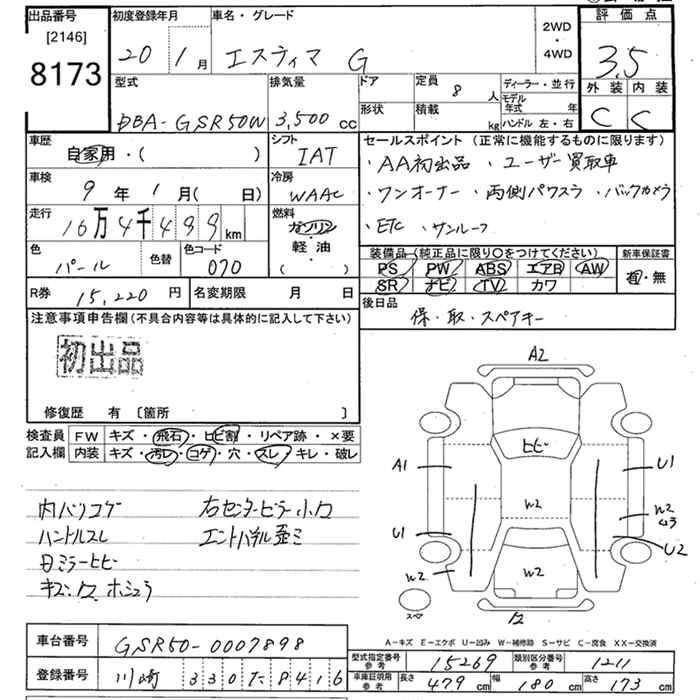 出品番号 [2146] 8173
初度登録年月 20 1月
車名・グレード エスティマ G
2WD・4WD
評価点 3.5
外装 内装
C C
型式 DBA-GSR50W
排気量 3,500 cc
ドア
形状
定員 8人
積載 kg
ディーラー・並行
モデル年式 年
ハンドル 左・右
車歴 自家用・( )
シフト IAT
セールスポイント (正常に機能するものに限ります)
・AA初出品 ・ユーザー買取車
・ワンオーナー ・両側パワスラ ・バックカメラ
・ETC ・サンルーフ
車検 9年 1月( 日)
冷房 WAAC
走行 16万4千499km
燃料 ガソリン・軽油 ( )
色 パール
色替
色コード 070
装備品 (純正品に限り〇をつけてください)
PS PW ABS エアB AW
SR ナビ TV カワ
新車保証書 有・無
R券 15,220円
名変期限 月 日
後日品
保・取・スペアキー
注意事項申告欄(不具合内容等は具体的に記入して下さい)
初出品
修復歴 有 〔箇所 〕
検査員 FW キズ・飛石・ヒビ割・リペア跡・×要
記入欄 内装 キズ・汚レ・コゲ・穴・スレ・キレ・破レ
内パリコゲ 右センターピラー小凹
ハンドルスレ エンドパネル歪ミ
日ミラーヒビ
A2
ヒビ
A1 U1
W2 W2
U3
U1 U2
W2 W2
スペア
A-キズ E-エクボ U-凹み W-補修跡 S-サビ C-腐食 XX-交換済
車台番号 GSR50-0007898
型式指定番号 参考 15269
類別区分番号 参考 1211
登録番号 川崎 330 8416
車庫証明用 参考 長さ 479cm 幅 180cm 高さ 173cm